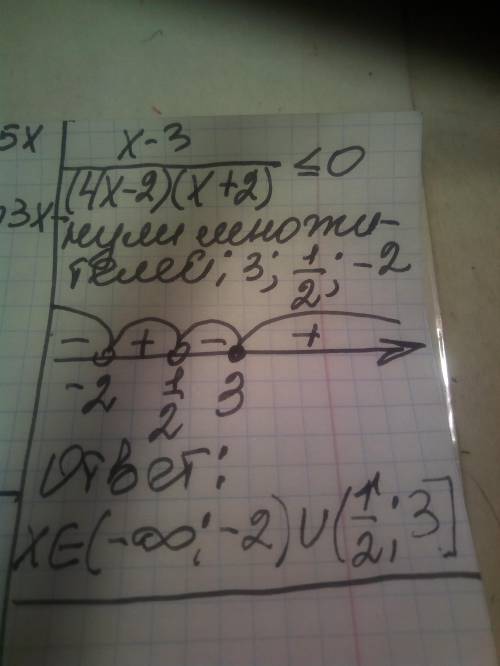 5x
x-3
(4x-2)(x+2) ≤0
03x-
нули множи-
телей; 3; 1/2; -2
- + - +
-2 1/2 3
Ответ:
x∈(-∞;-2)∪(1/2;3]